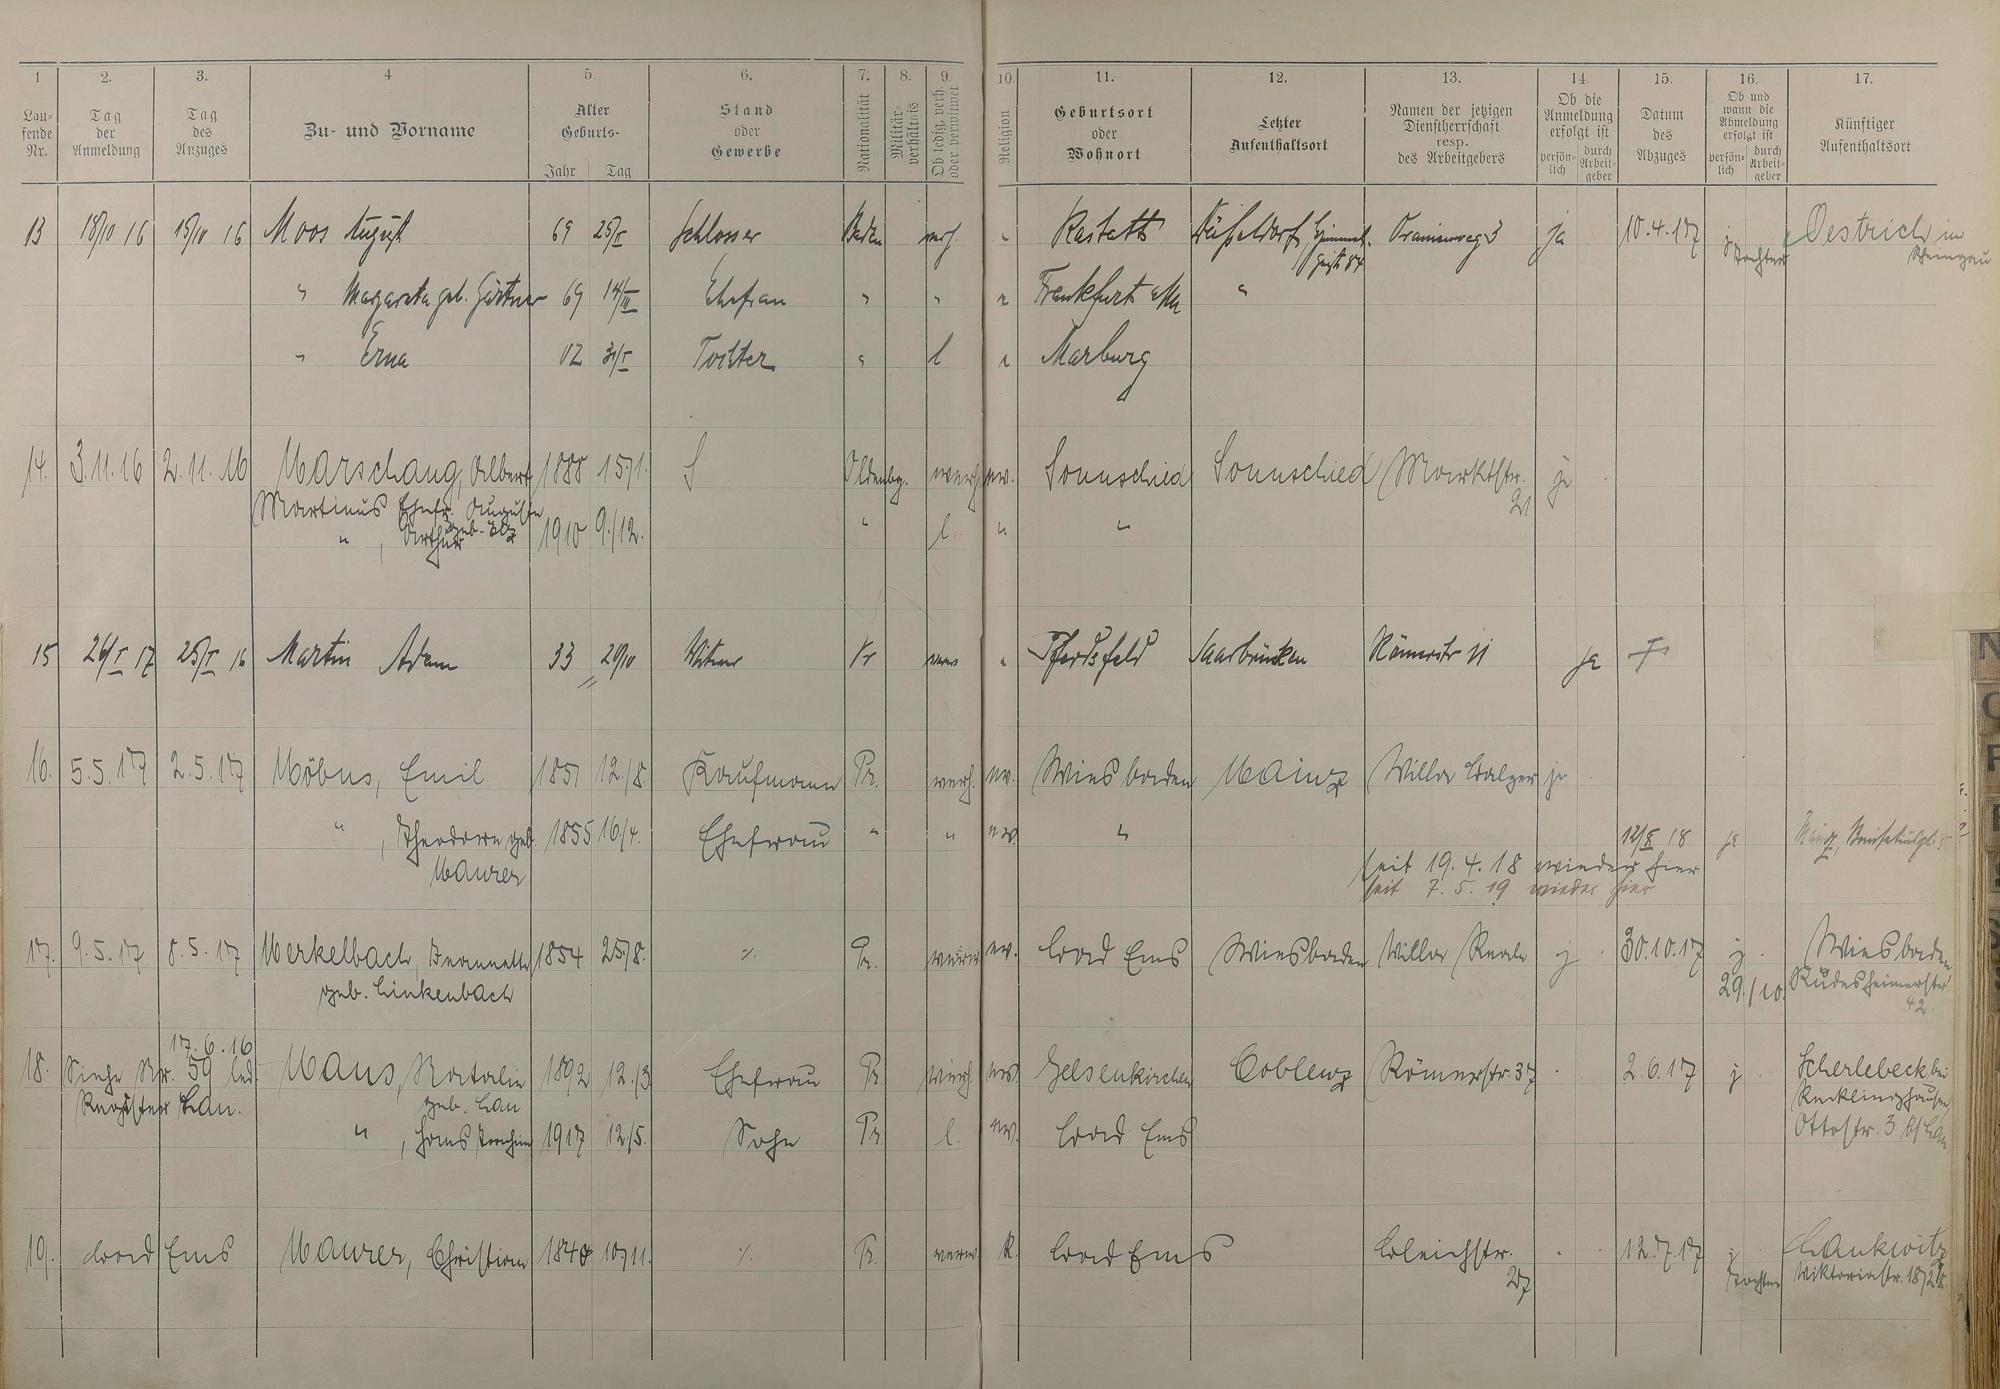 1 2. 3. 4 5. 6. 7. 8. 9. 10. 11. 12. 13. 14. 15. 16. 17.
Lau-
fende
Nr.
Tag
der
Anmeldung
Tag
des
Anzuges
Zu- und Vorname
Alter
Geburts-
Jahr Tag
Stand
oder
Gewerbe
Nationalität
Militär-
verhältnis
Ob ledig, verh.
oder verwitwet
Religion
Geburtsort
oder
Wohnort
Letzter
Aufenthaltsort
Namen der jetzigen
Dienstherrschaft
resp.
des Arbeitgebers
Ob die
Anmeldung
erfolgt ist
persön-
lich
durch
Arbeit-
geber
Datum
des
Abzuges
Ob und
wann die
Abmeldung
erfolgt ist
persön-
lich
durch
Arbeit-
geber
Künftiger
Aufenthaltsort
13 18/10 16 15/10 16 Moos August 69 25/V Schlosser Baden verh. " Rastatt Düsseldorf, Oranienweg 3 ja 10.4.17 j Oestrich im
Tochter Rheingau
" Margareta geb. Gärtner 69 14/III Ehefrau " " " Frankfurt a/M "
" Erna 02 31/V Tochter " l " Marburg
14. 3.11.16 2.11.16 Marschang, Albert 1888 15/1. Oldenbg. verh. ev. Sonnschied Sonnschied Marktstr. ja
21
Martinus Ehefr. Auguste
geb.
" , Arthur 1910 9./12. " l. " "
15 26/V 17 25/V 16 Martin Adam 33 20/10 Witwer Pr " Pferdsfeld Saarbrücken Römerstr 11 ja
16. 5.5.17 2.5.17 Möbus, Emil 1851 12./8. Kaufmann Pr. verh. ev. Wiesbaden Mainz Villa Balzer ja
" , Theodore geb. 1855 16/4. Ehefrau " " ev. " 12/X 18 ja Mainz, Bonifatiuspl. 5
Maurer
seit 19.4.18 wieder hier
seit 7.5.19 wieder hier
17. 9.5.17 8.5.17 Merkelbach, Jeannette 1854 25/8. ./. Pr. verw. ev. Bad Ems Wiesbaden Villa Reale j 30.10.17 j Wiesbaden
geb. Linkenbach 29./10. Rüdesheimerstr.
42.
17.6.16
18. Siehe Nr. 59 led. Maus, Natalie 1892 12./3. Ehefrau Pr. verh. ev. Gelsenkirchen Coblenz Römerstr. 37 2.6.17 j Scherlebeck bei
Register Lau. geb. Lau Recklinghausen
" , Hans Joachim 1917 12./5. Sohn Pr. l. ev. Bad Ems Ottostr. 3 b/ Lau
19. Bad Ems Maurer, Christian 1840 10/11. ./. Pr. verw. K. Bad Ems Bleichstr. 12.7.17 j Lankwitz
27 Tochter Viktoriastr.